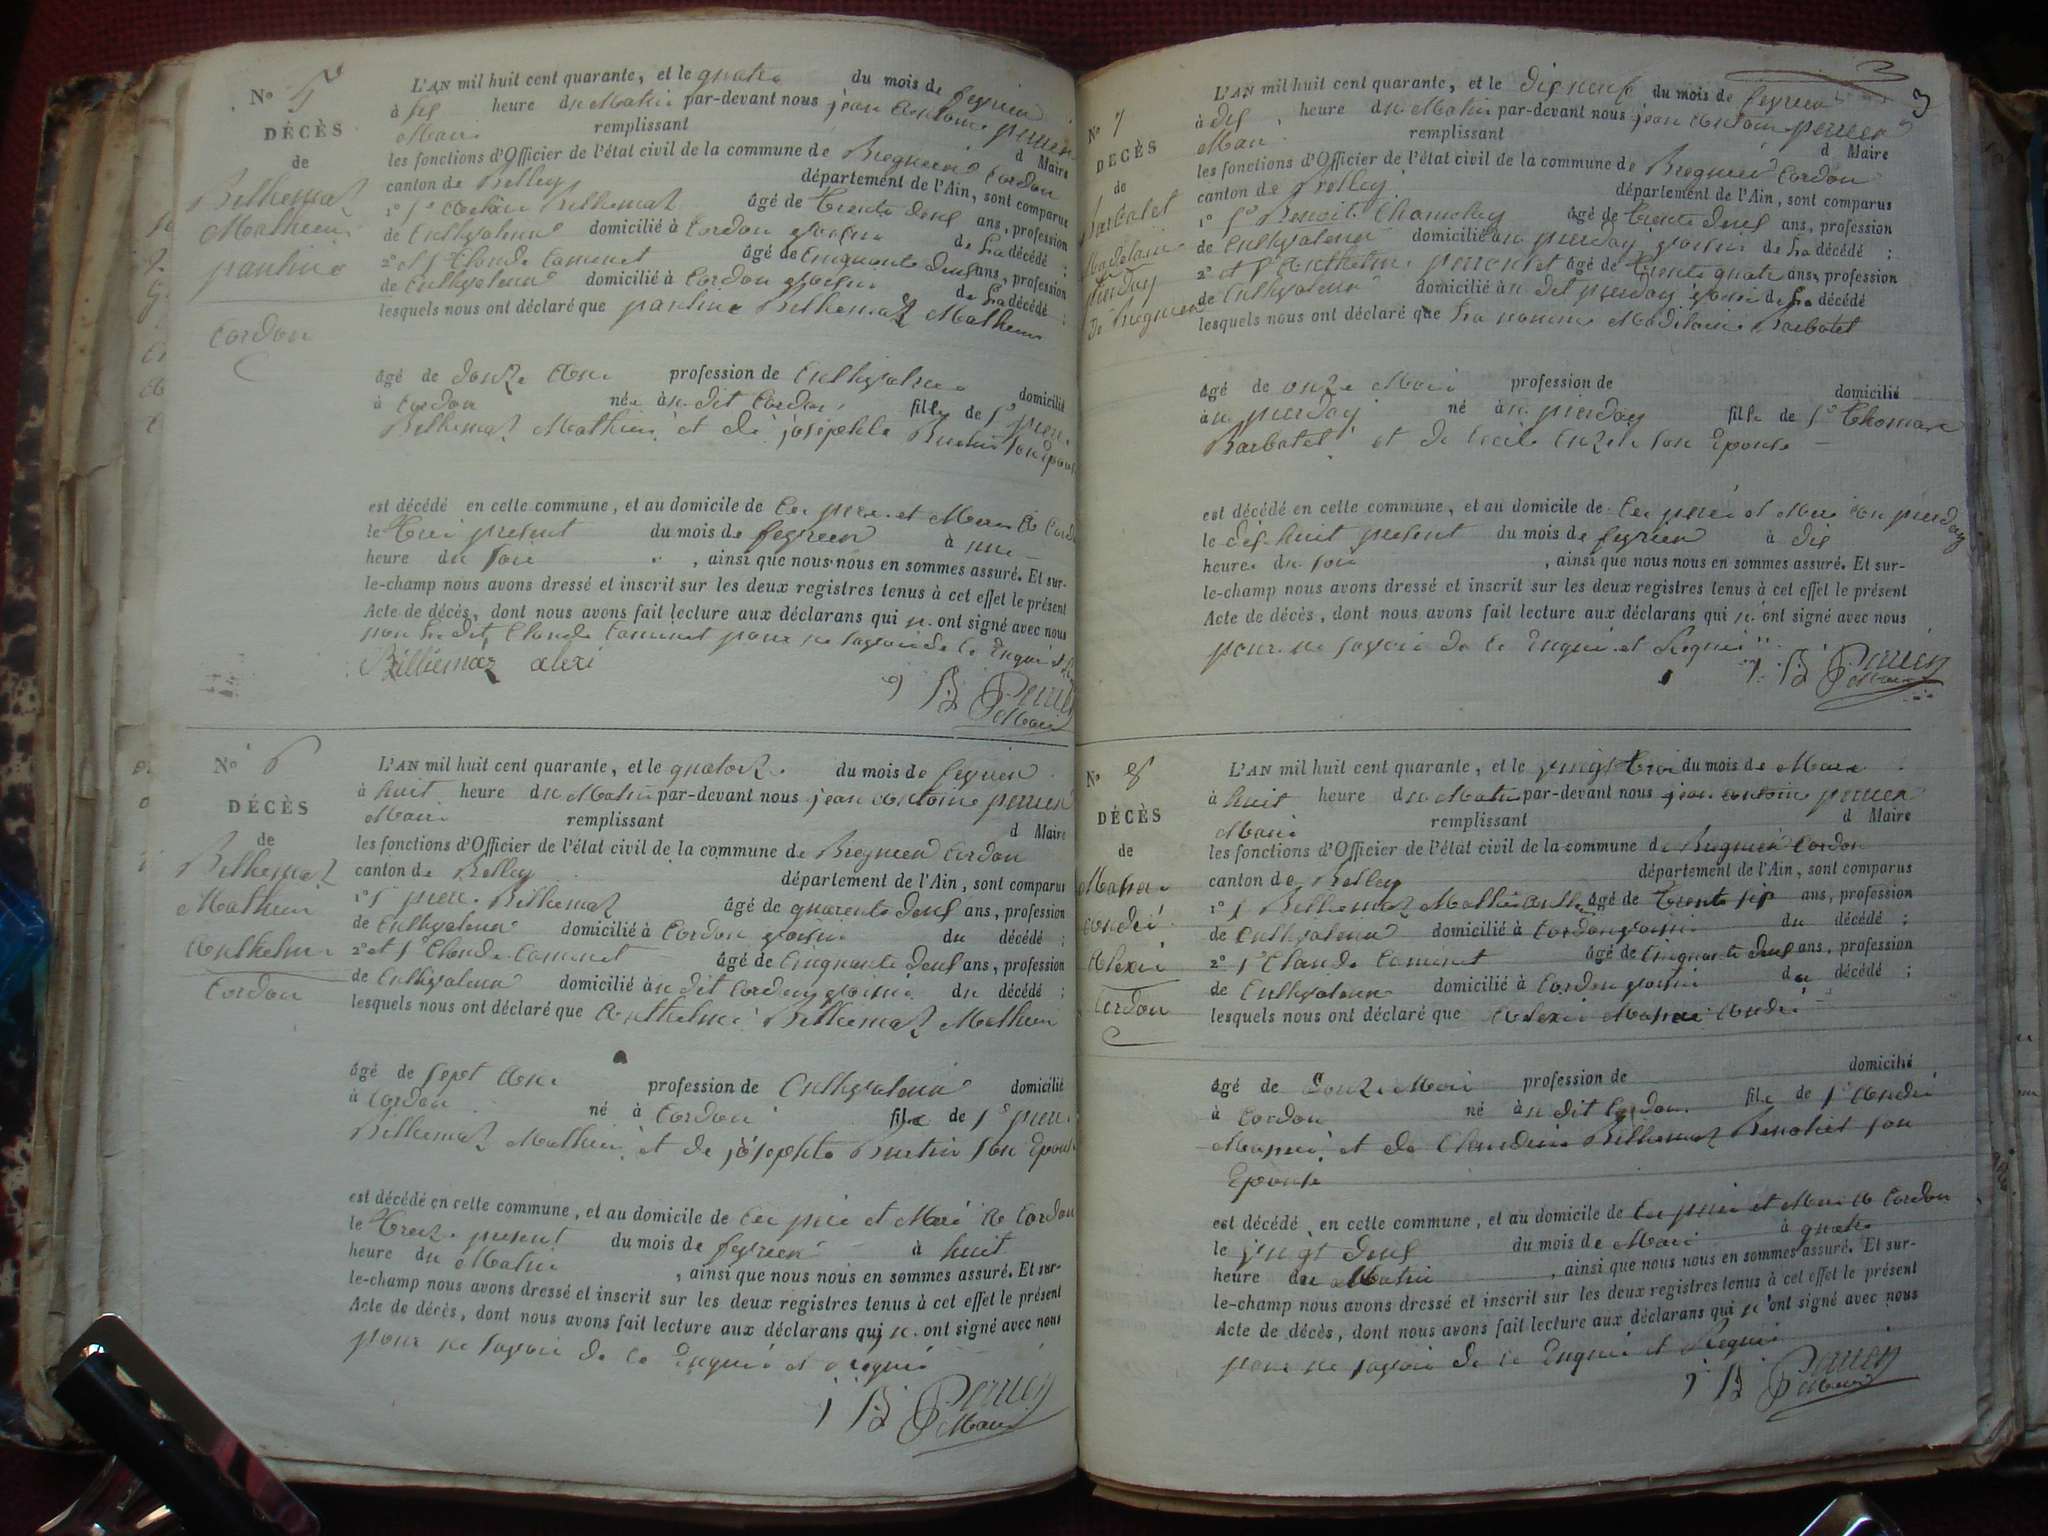 No 5
DÉCÈS
de
Billiemaz
Mathieu
pauline
Cordon
L'AN mil huit cent quarante, et le quatre du mois de fevrier
à heure du Matin par-devant nous jean antoine perrier
Maire remplissant d Maire
les fonctions d'Officier de l'état civil de la commune de Bregnier Cordon
canton de Belley département de l'Ain, sont comparus
1º Sr Billiemaz âgé de trente deux ans, profession
de Cultivateur domicilié à Cordon voisin de La décédé ;
2º et Sr Claude Caminet âgé de Cinquante deux ans, profession
de Cultivateur domicilié à Cordon voisin de La décédé ;
lesquels nous ont déclaré que pauline Billiemaz Mathieu
âgé de douze ans profession de Cultivatrice domicilié
à Cordon née à dit Cordon fille de Sr pierre
Billiemaz Mathieu et de josephte Burtin son Epouse
est décédé en cette commune, et au domicile de Ces pere et Mere a Cordon
le Troi present du mois de fevrier à une
heure du soir , ainsi que nous nous en sommes assuré. Et sur-
le-champ nous avons dressé et inscrit sur les deux registres tenus à cet effet le présent
Acte de décès, dont nous avons fait lecture aux déclarans qui n. ont signé avec nous
dit Claude Caminet pour ne savoir de ce Enquis
Billiemaz alexi
Perrier
Maire
No 6
DÉCÈS
de
Billiemaz
Mathieu
Anthelme
Cordon
L'AN mil huit cent quarante, et le quatorze du mois de fevrier
à huit heure du Matin par-devant nous jean antoine perrier
Maire remplissant d Maire
les fonctions d'Officier de l'état civil de la commune de Bregnier Cordon
canton de Belley département de l'Ain, sont comparus
1º Sr pierre Billiemaz âgé de quarente deux ans, profession
de Cultivateur domicilié à Cordon voisin du décédé ;
2º et Sr Claude Caminet âgé de Cinquante deux ans, profession
de Cultivateur domicilié à dit Cordon voisin du décédé ;
lesquels nous ont déclaré que Anthelme Billiemaz Mathieu
âgé de sept ans profession de Cultivateur domicilié
à Cordon né à Cordon fils de Sr pierre
Billiemaz Mathieu et de josephte Burtin son Epouse
est décédé en cette commune, et au domicile de Ces pere et Mere a Cordon
le Treize present du mois de fevrier à huit
heure du Matin , ainsi que nous nous en sommes assuré. Et sur-
le-champ nous avons dressé et inscrit sur les deux registres tenus à cet effet le présent
Acte de décès, dont nous avons fait lecture aux déclarans qui n. ont signé avec nous
pour ne savoir de ce Enquis et requis
Perrier
Maire
3
3
No 7
DÉCÈS
de
Barbolet
Madelaine
de Bregnier
L'AN mil huit cent quarante, et le dix neuf du mois de fevrier
à dix heure du Matin par-devant nous jean antoine perrier
Maire remplissant d Maire
les fonctions d'Officier de l'état civil de la commune de Bregnier Cordon
canton de Belley département de l'Ain, sont comparus
1º Sr Benoit âgé de trente deux ans, profession
de Cultivateur domicilié à voisin de La décédé ;
2º et Sr Anthelme âgé de trente quatre ans, profession
de Cultivateur domicilié à dit voisin de La décédé
lesquels nous ont déclaré que La nommé Madelaine Barbolet
âgé de onze Mois profession de domicilié
à né à fille de Sr Thomas
Barbolet et de Cecile son Epouse
est décédé en cette commune, et au domicile de Ces pere et Mere
le dix-huit present du mois de fevrier à dix
heure du soir , ainsi que nous nous en sommes assuré. Et sur-
le-champ nous avons dressé et inscrit sur les deux registres tenus à cet effet le présent
Acte de décès, dont nous avons fait lecture aux déclarans qui n. ont signé avec nous
pour ne savoir de ce Enquis et Requis
Perrier
Maire
No 8
DÉCÈS
de
andré
Alexi
Cordon
L'AN mil huit cent quarante, et le vingt troi du mois de Mars
à huit heure du Matin par-devant nous jean antoine perrier
Maire remplissant d Maire
les fonctions d'Officier de l'état civil de la commune de Bregnier Cordon
canton de Belley département de l'Ain, sont comparus
1º Sr Billiemaz Mathieu âgé de trente six ans, profession
de Cultivateur domicilié à Cordon voisin du décédé ;
2º Sr Claude Caminet âgé de Cinquante deux ans, profession
de Cultivateur domicilié à Cordon voisin du décédé ;
lesquels nous ont déclaré que Alexi andré
âgé de Mois profession de domicilié
à Cordon né à dit Cordon fils de Sr André
et de Claudine Billiemaz son
Epouse
est décédé en cette commune, et au domicile de Ces pere et Mere a Cordon
le vingt deux du mois de Mars à quatre
heure du Matin , ainsi que nous nous en sommes assuré. Et sur-
le-champ nous avons dressé et inscrit sur les deux registres tenus à cet effet le présent
Acte de décès, dont nous avons fait lecture aux déclarans qui n'ont signé avec nous
pour ne savoir de ce Enquis et Requis
Perrier
Maire